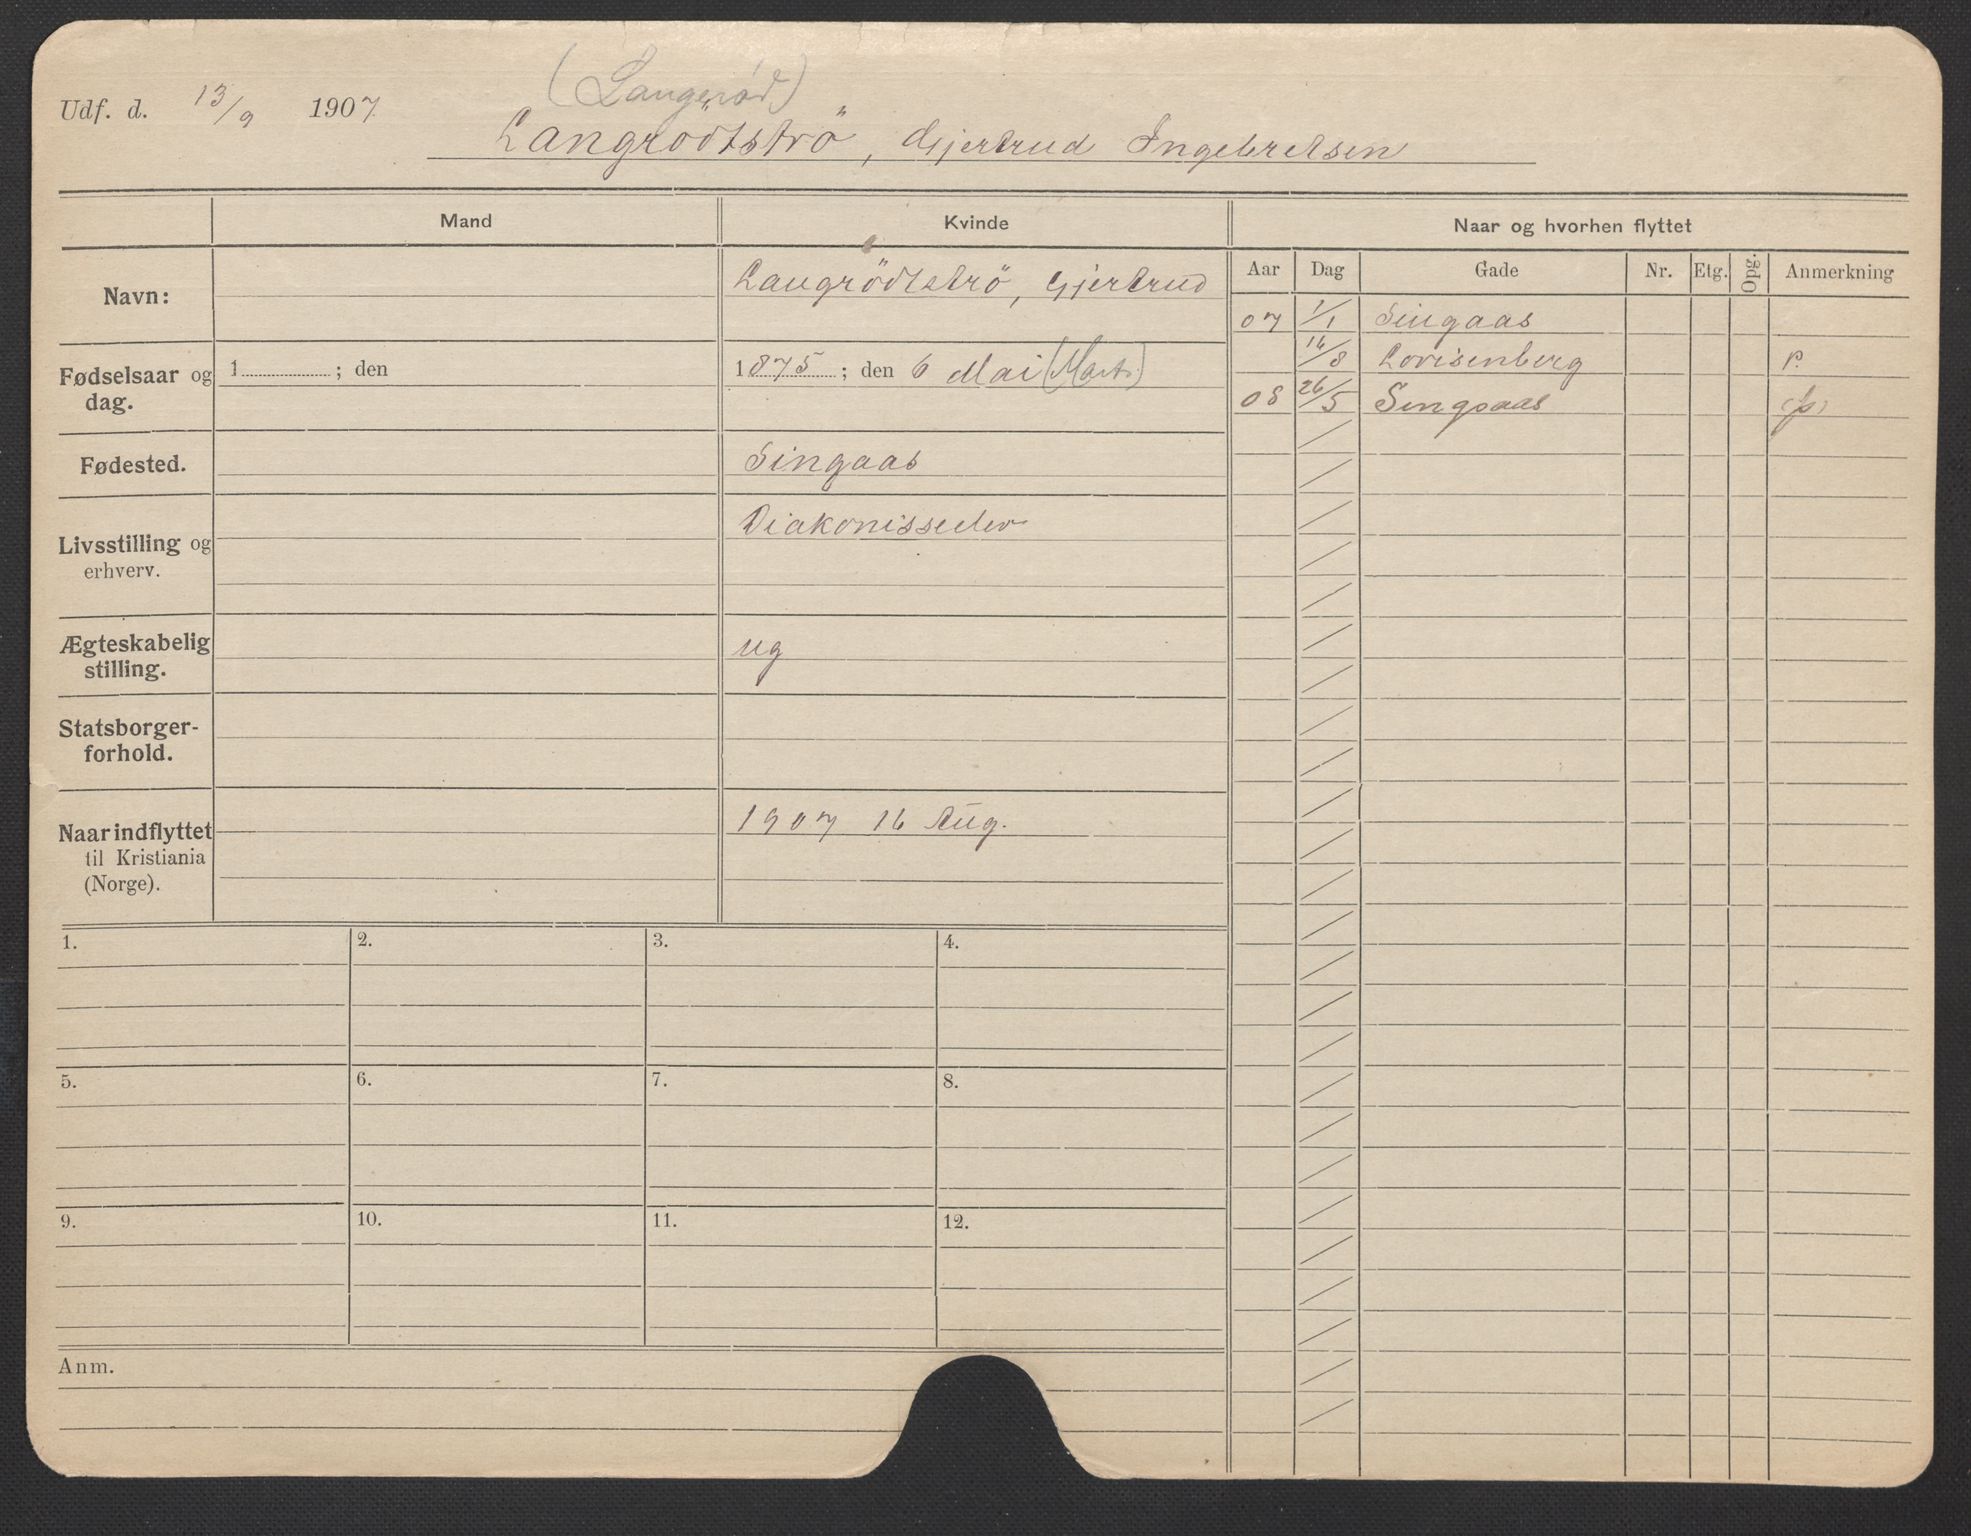 (Langerød)
Udf. d. 13/9 1907
Langrödtströ, Gjertrud Ingebretsen
Mand
Kvinde
Naar og hvorhen flyttet
Aar Dag Gade Nr. Etg. Opg. Anmerkning
Navn:
Langrödtströ, Gjertrud
07 1/1 Singaas
16/8 Lovisenberg p.
08 26/5 Singsaas (p)
Fødselsaar og
dag.
1 ; den
1875 ; den 6 Mai (Marts)
Fødested.
Singaas
Livsstilling og
erhverv.
Diakonisseelev
Ægteskabelig
stilling.
ug
Statsborger-
forhold.
Naar indflyttet
til Kristiania
(Norge).
1907 16 Aug.
1. 2. 3. 4.
5. 6. 7. 8.
9. 10. 11. 12.
Anm.